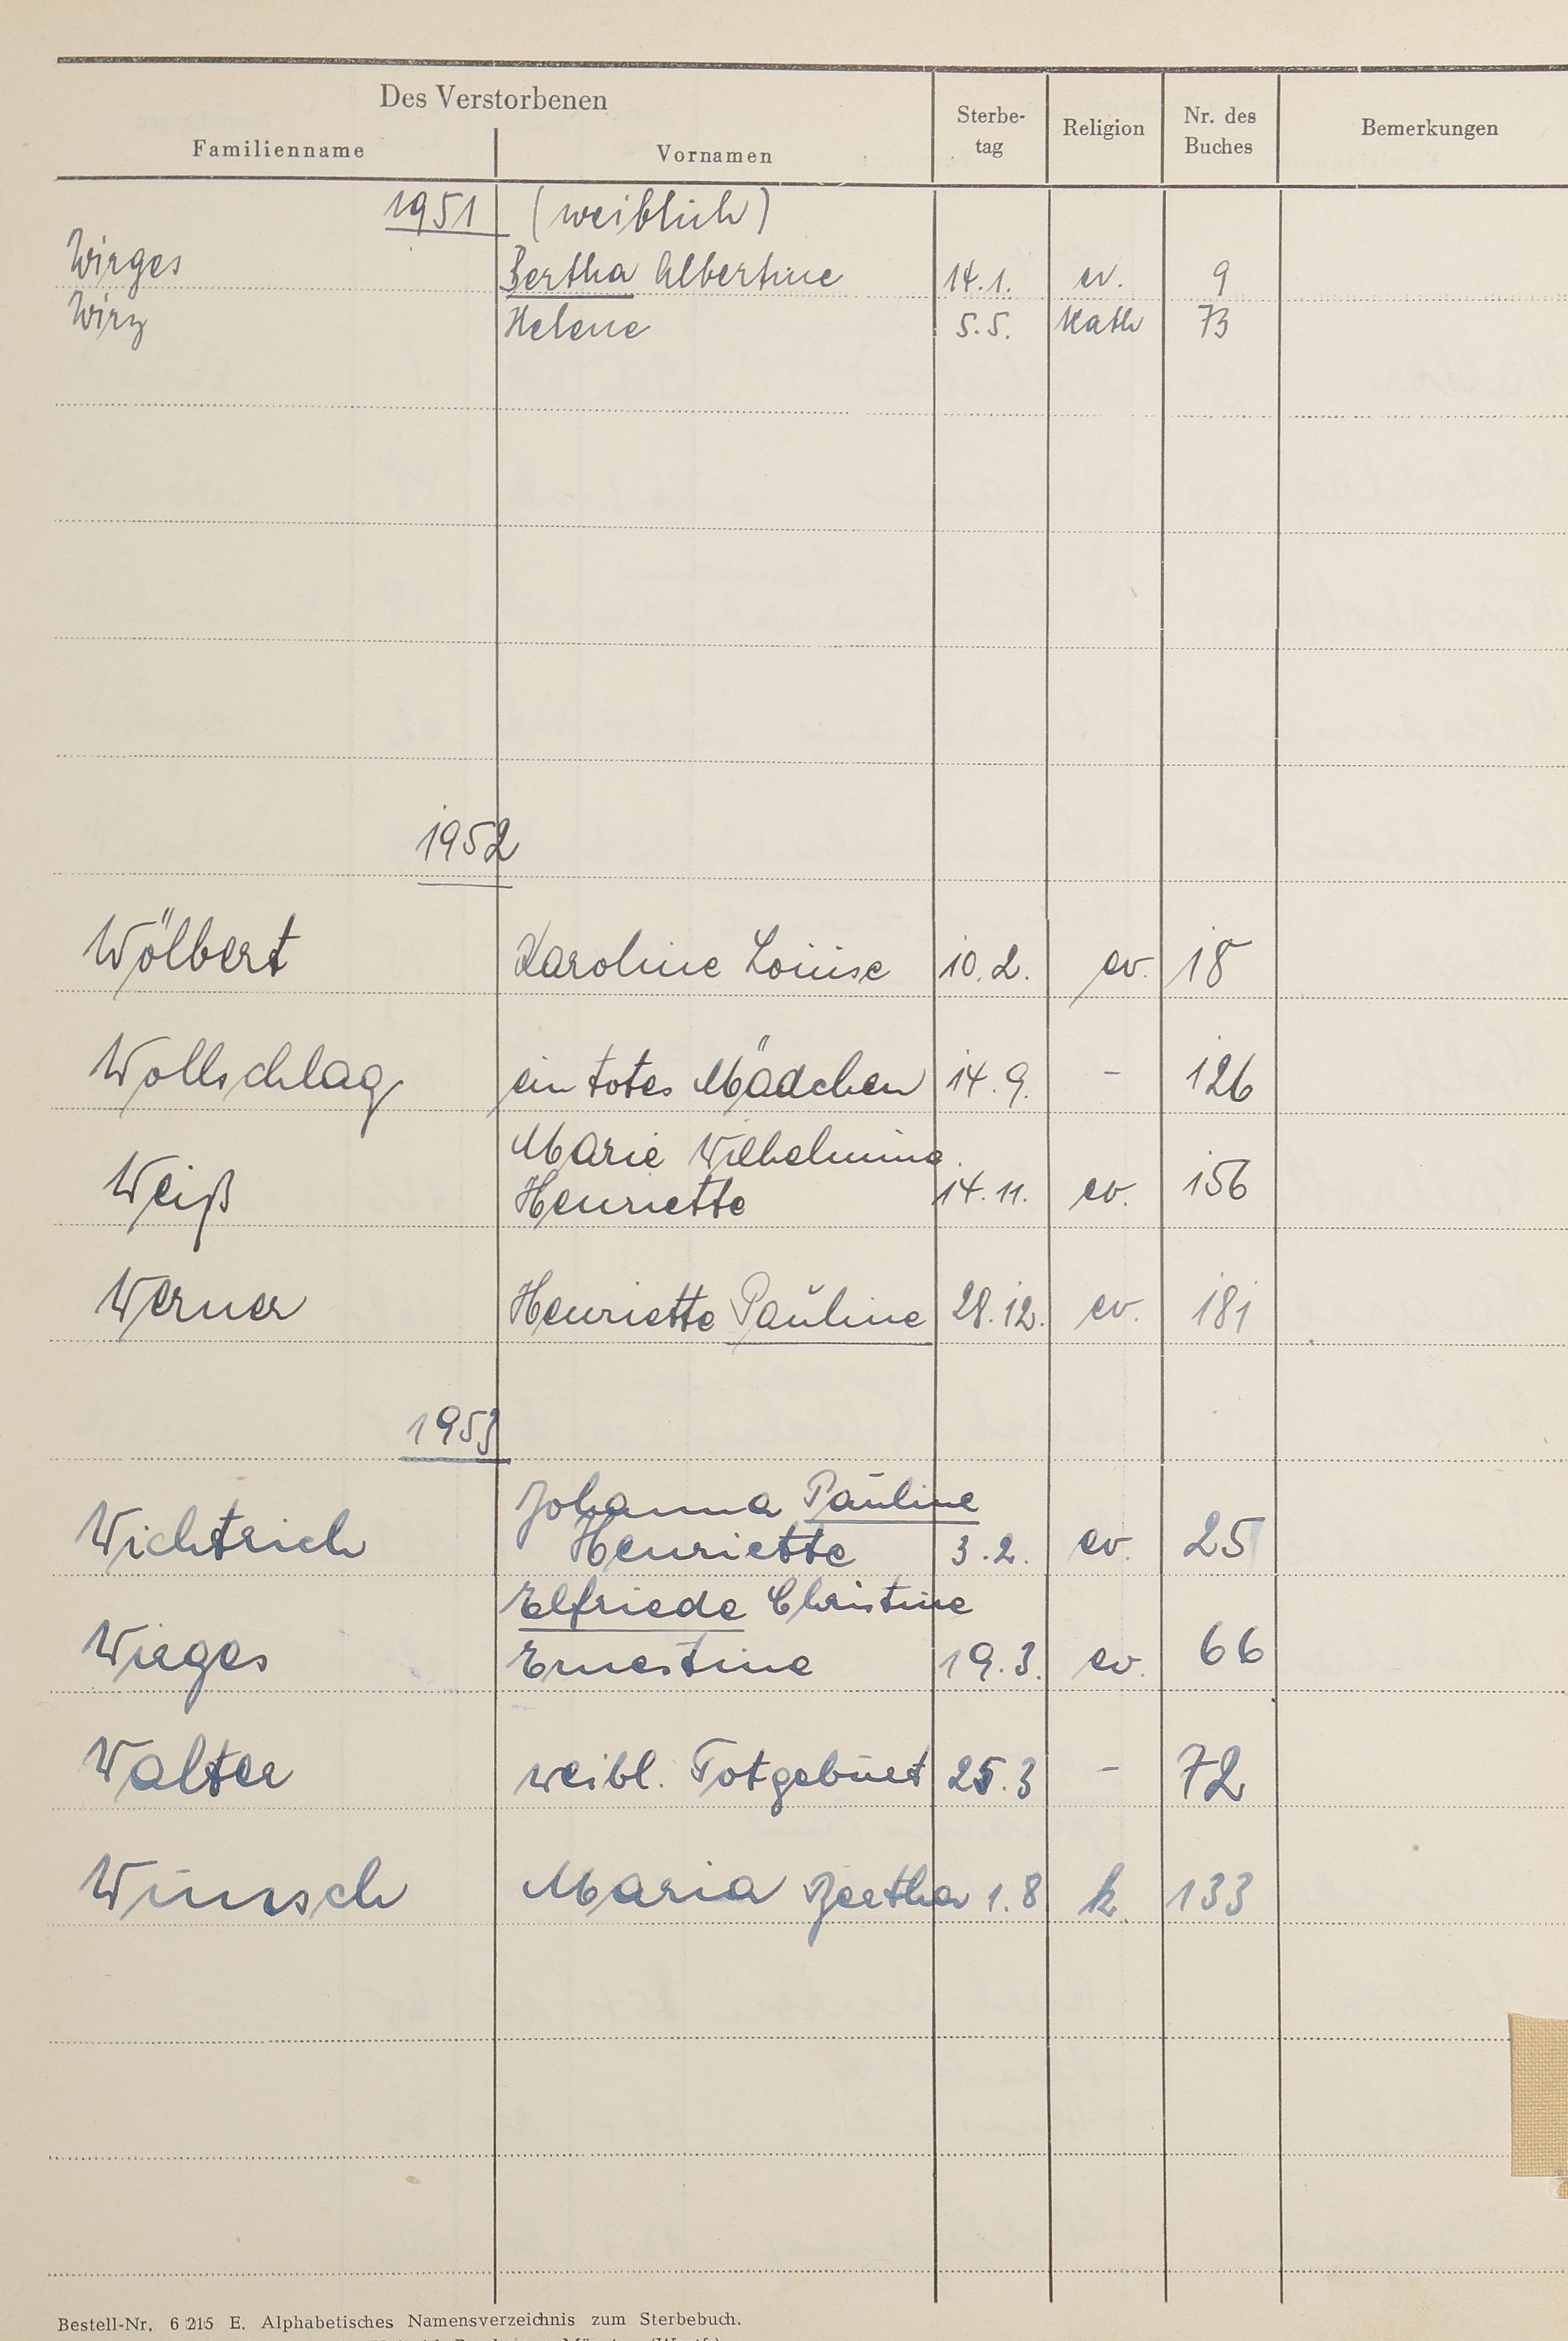 Des Verstorbenen
Familienname Vornamen Sterbe-tag Religion Nr. des Buches Bemerkungen
1951 (weiblich)
Wirges Bertha Albertine 14.1. ev. 9
Wirz Helene 5.5. Kath 73
1952
Wölbert Karoline Louise 10.2. ev. 18
Wollschlag ein totes Mädchen 14.9. - 126
Marie Wilhelmine
Weiß Henriette 14.11. ev. 156
Werner Henriette Pauline 28.12. ev. 181
1953
Johanna Pauline
Wichtrich Henriette 3.2. ev. 25
Elfriede Christine
Wieges Ernestine 19.3. ev. 66
Walter weibl. Totgeburt 25.3 - 72
Wunsch Maria Hertha 1.8 k. 133
Bestell-Nr. 6 215 E. Alphabetisches Namensverzeichnis zum Sterbebuch.